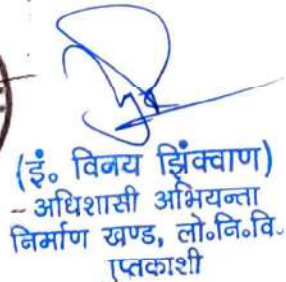 (इं० विनय झिंक्वाण)
- अधिशासी अभियन्ता
निर्माण खण्ड, लो०नि०वि०
प्तकाशी